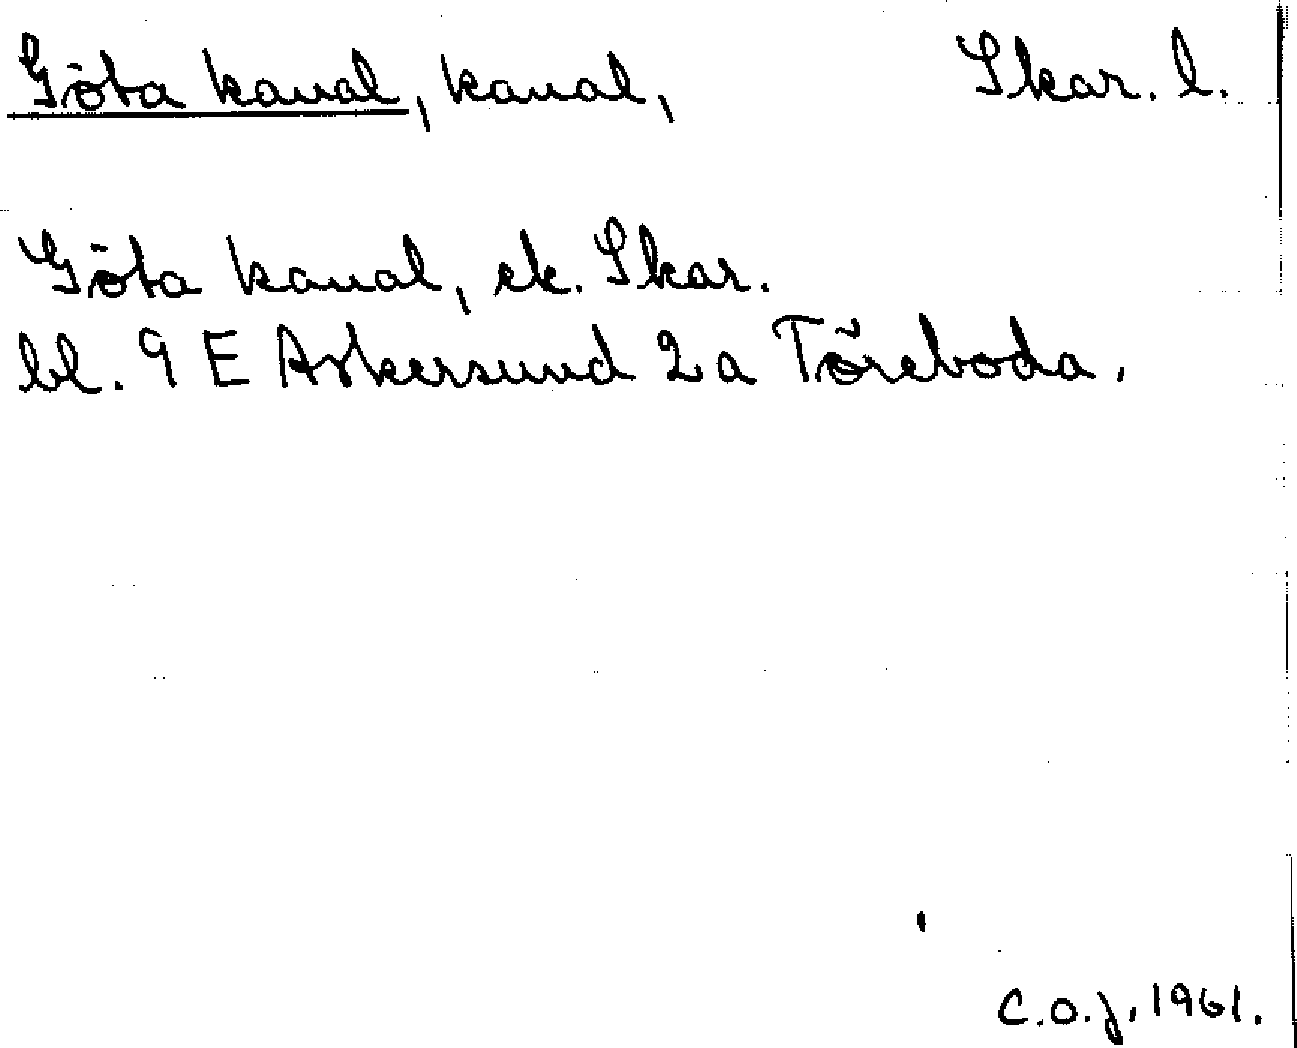 Göta kanal, kanal, Skar. l.
Göta kanal, ek. Skar.
bl. 9 E Askersund 2a Töreboda.
C.O.J. 1961.